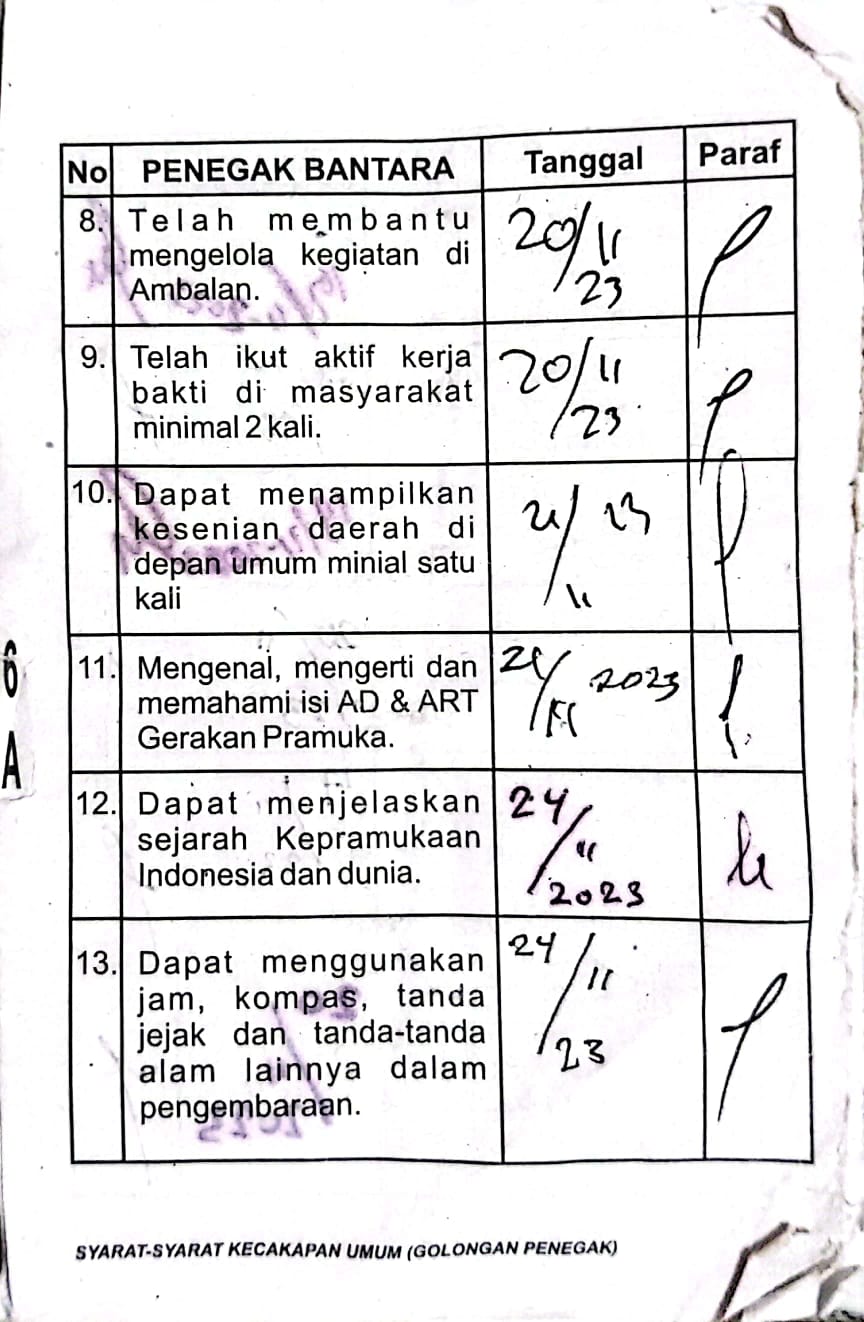 No PENEGAK BANTARA Tanggal Paraf
8. Telah membantu
mengelola kegiatan di
Ambalan.
20/11
23
9. Telah ikut aktif kerja
bakti di masyarakat
minimal 2 kali.
20/11
23
10. Dapat menampilkan
kesenian daerah di
depan umum minial satu
kali
23
11
11. Mengenai, mengerti dan
memahami isi AD & ART
Gerakan Pramuka.
2023
12. Dapat menjelaskan
sejarah Kepramukaan
Indonesia dan dunia.
24/
11
2023
13. Dapat menggunakan
jam, kompas, tanda
jejak dan tanda-tanda
alam lainnya dalam
pengembaraan.
24/11
23
6
A
SYARAT-SYARAT KECAKAPAN UMUM (GOLONGAN PENEGAK)